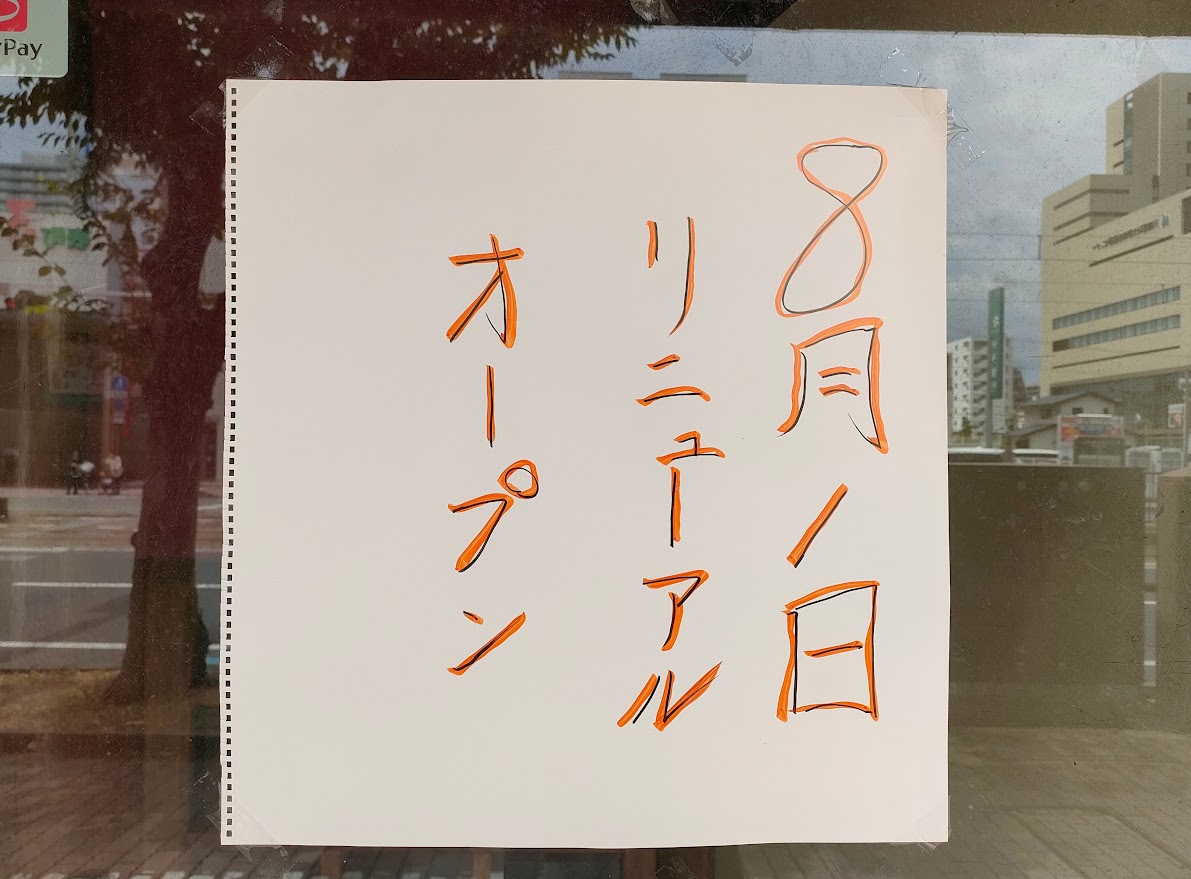 8月1日
リニューアル
オープン
Pay